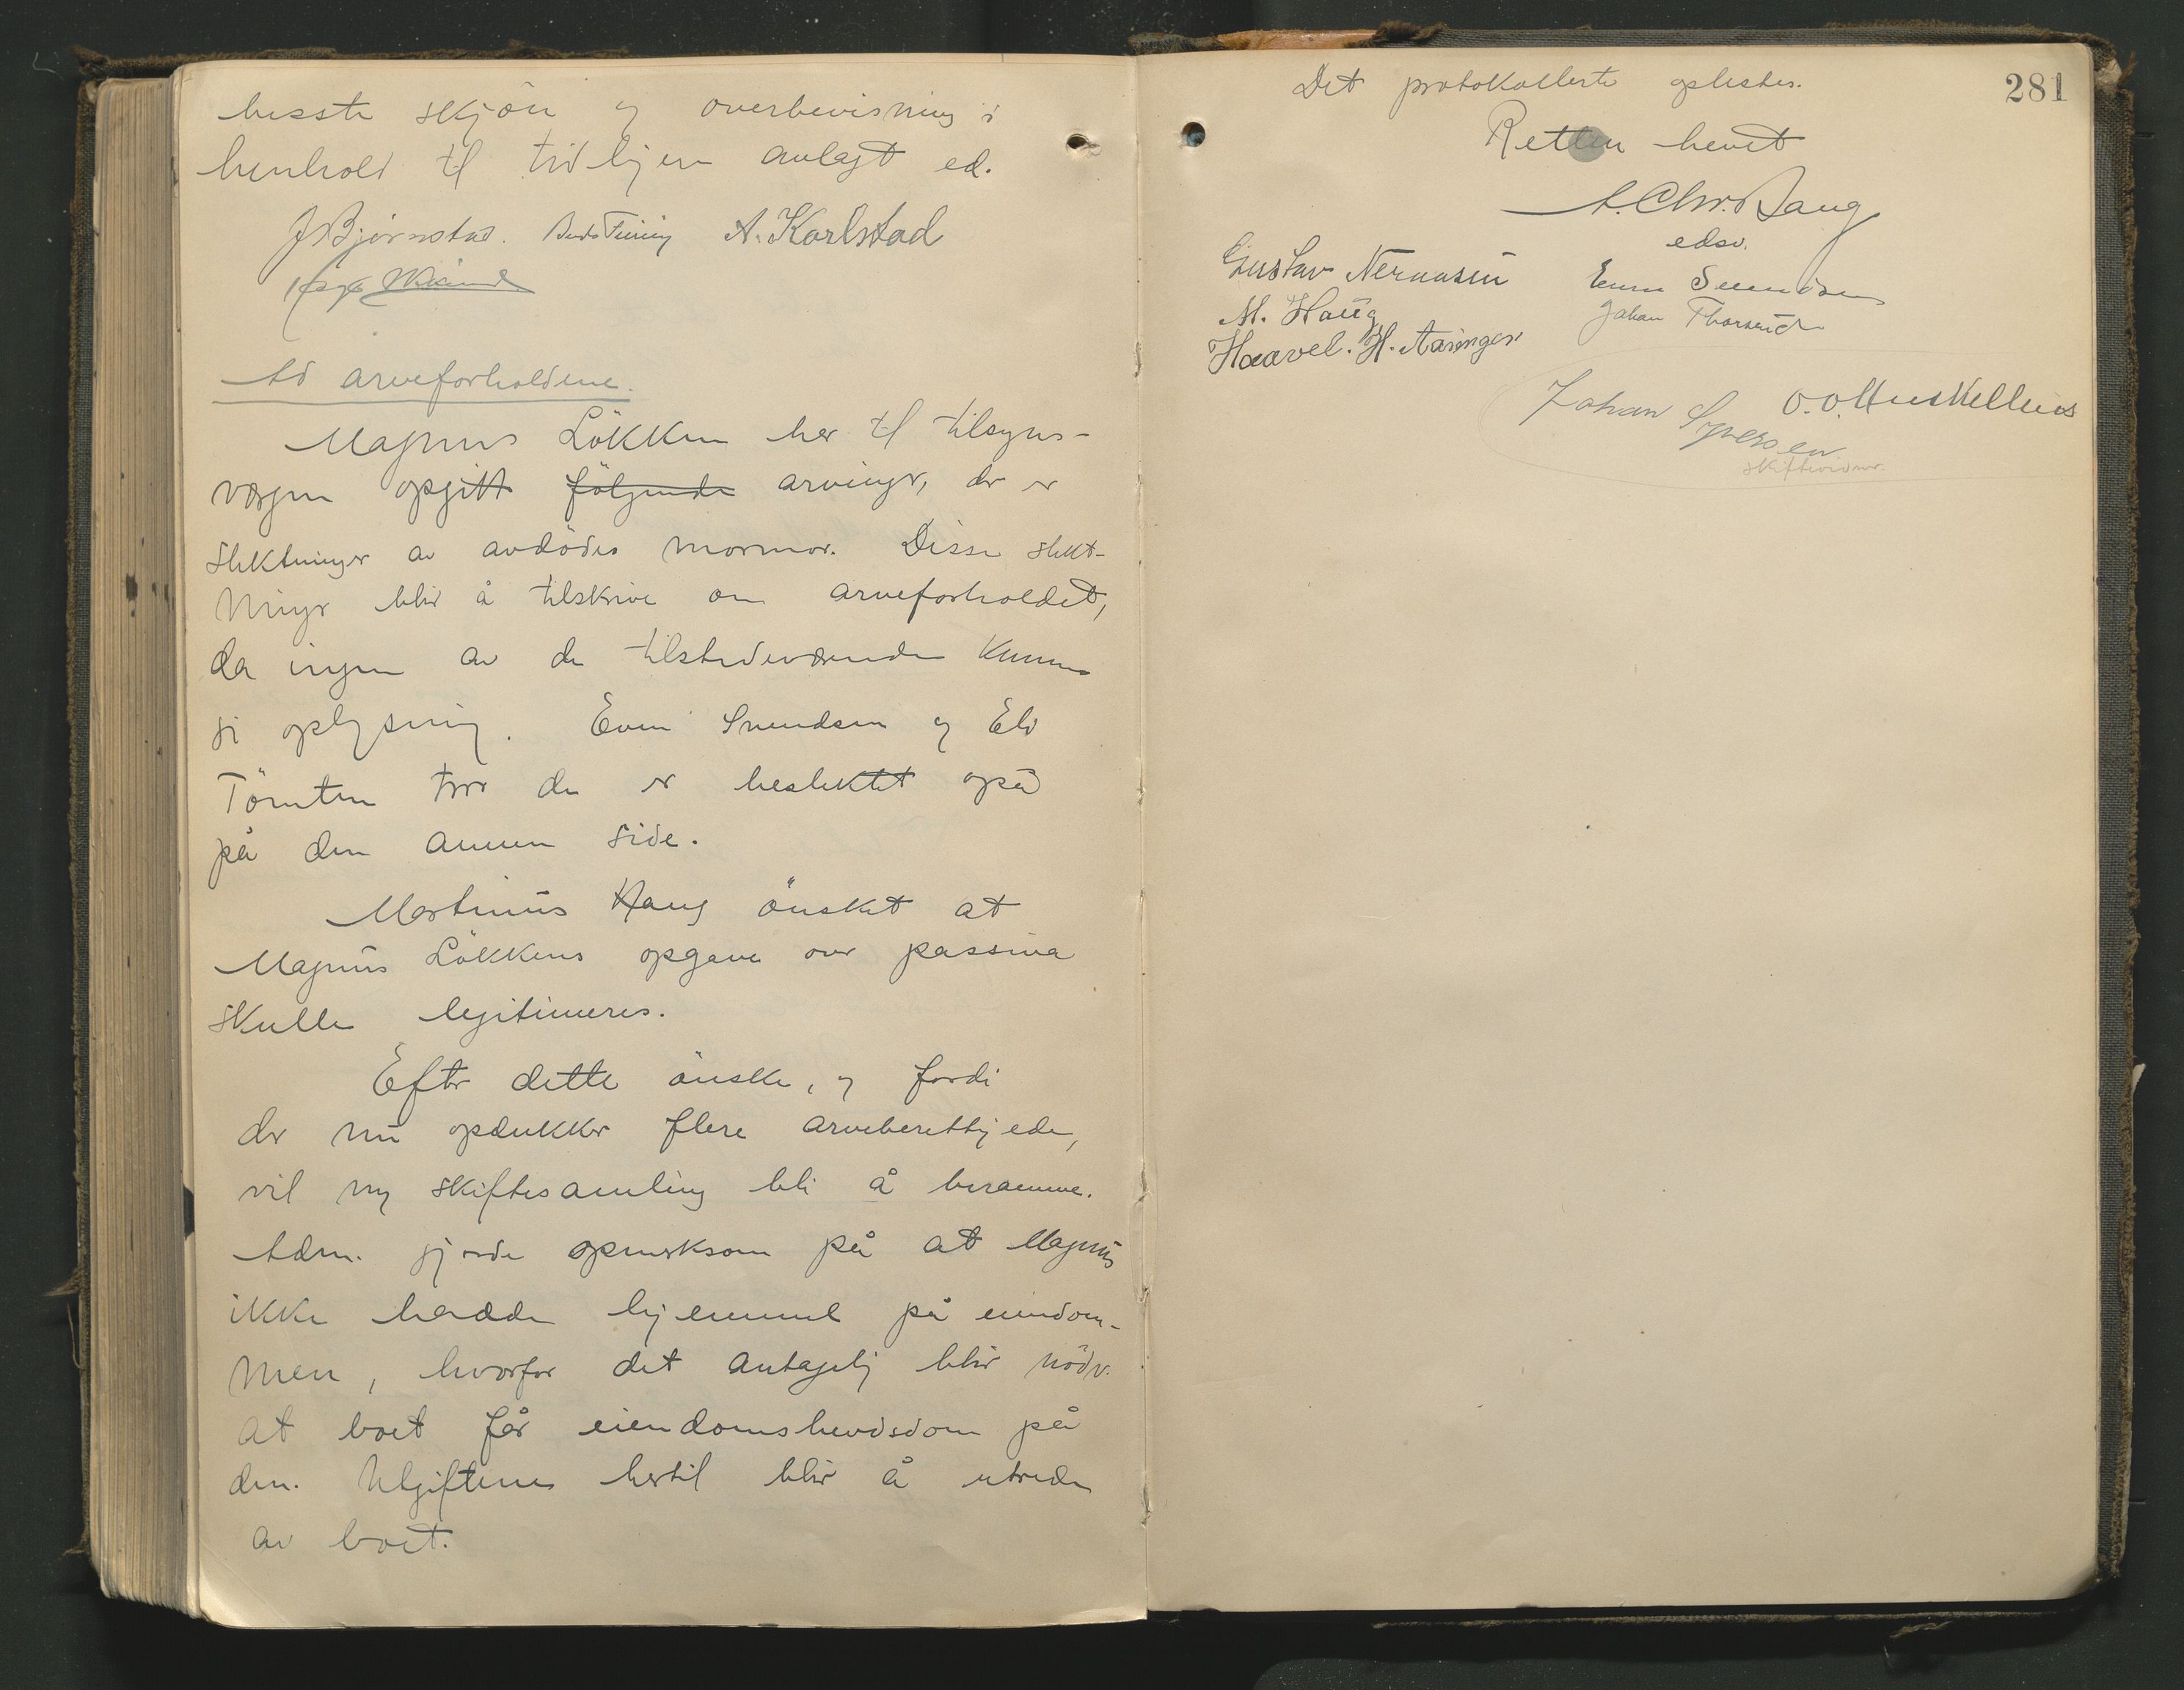 beste skjön og overbevisning i
henhold til tidligere avlagt ed.
J Bjørnstad. A. Karlstad
Ad arveforholdene.
Magnus Lökken har til tilsyns-
vergen opgitt følgende arvinger, der er
slektninger av avdödes mormor. Disse slekt-
ninger blir å tilskrive om arveforholdet,
da ingen av de tilstedeværende kunne
gi oplysning. Even Svendsen og Eli
Tömten tror de er beslektet også
på den annen side.
Martinus Haug önsket at
Magnus Lökkens opgave over passiva
skulle legitimeres.
Efter dette önske, og fordi
der nu opdukker flere arveberettigede,
vil ny skiftesamling bli å beramme.
Adm. gjorde opmerksom på at Magnus
ikke hadde hjemmel på eiendom-
men, hvorfor det antagelig blir nödv.
at boet får eiendomshevdsdom på
den. Utgiftene hertil blir å utrede
av boet.
281
Det protokollerte oplestes.
Retten hevet
A. Chr. Bang
edsv.
Gustav Hermansen Even Svendsen
M. Haug Johan Thorsrud
Haavel. H. Aasinger
Johan Syversen O. O.
skiftevidner